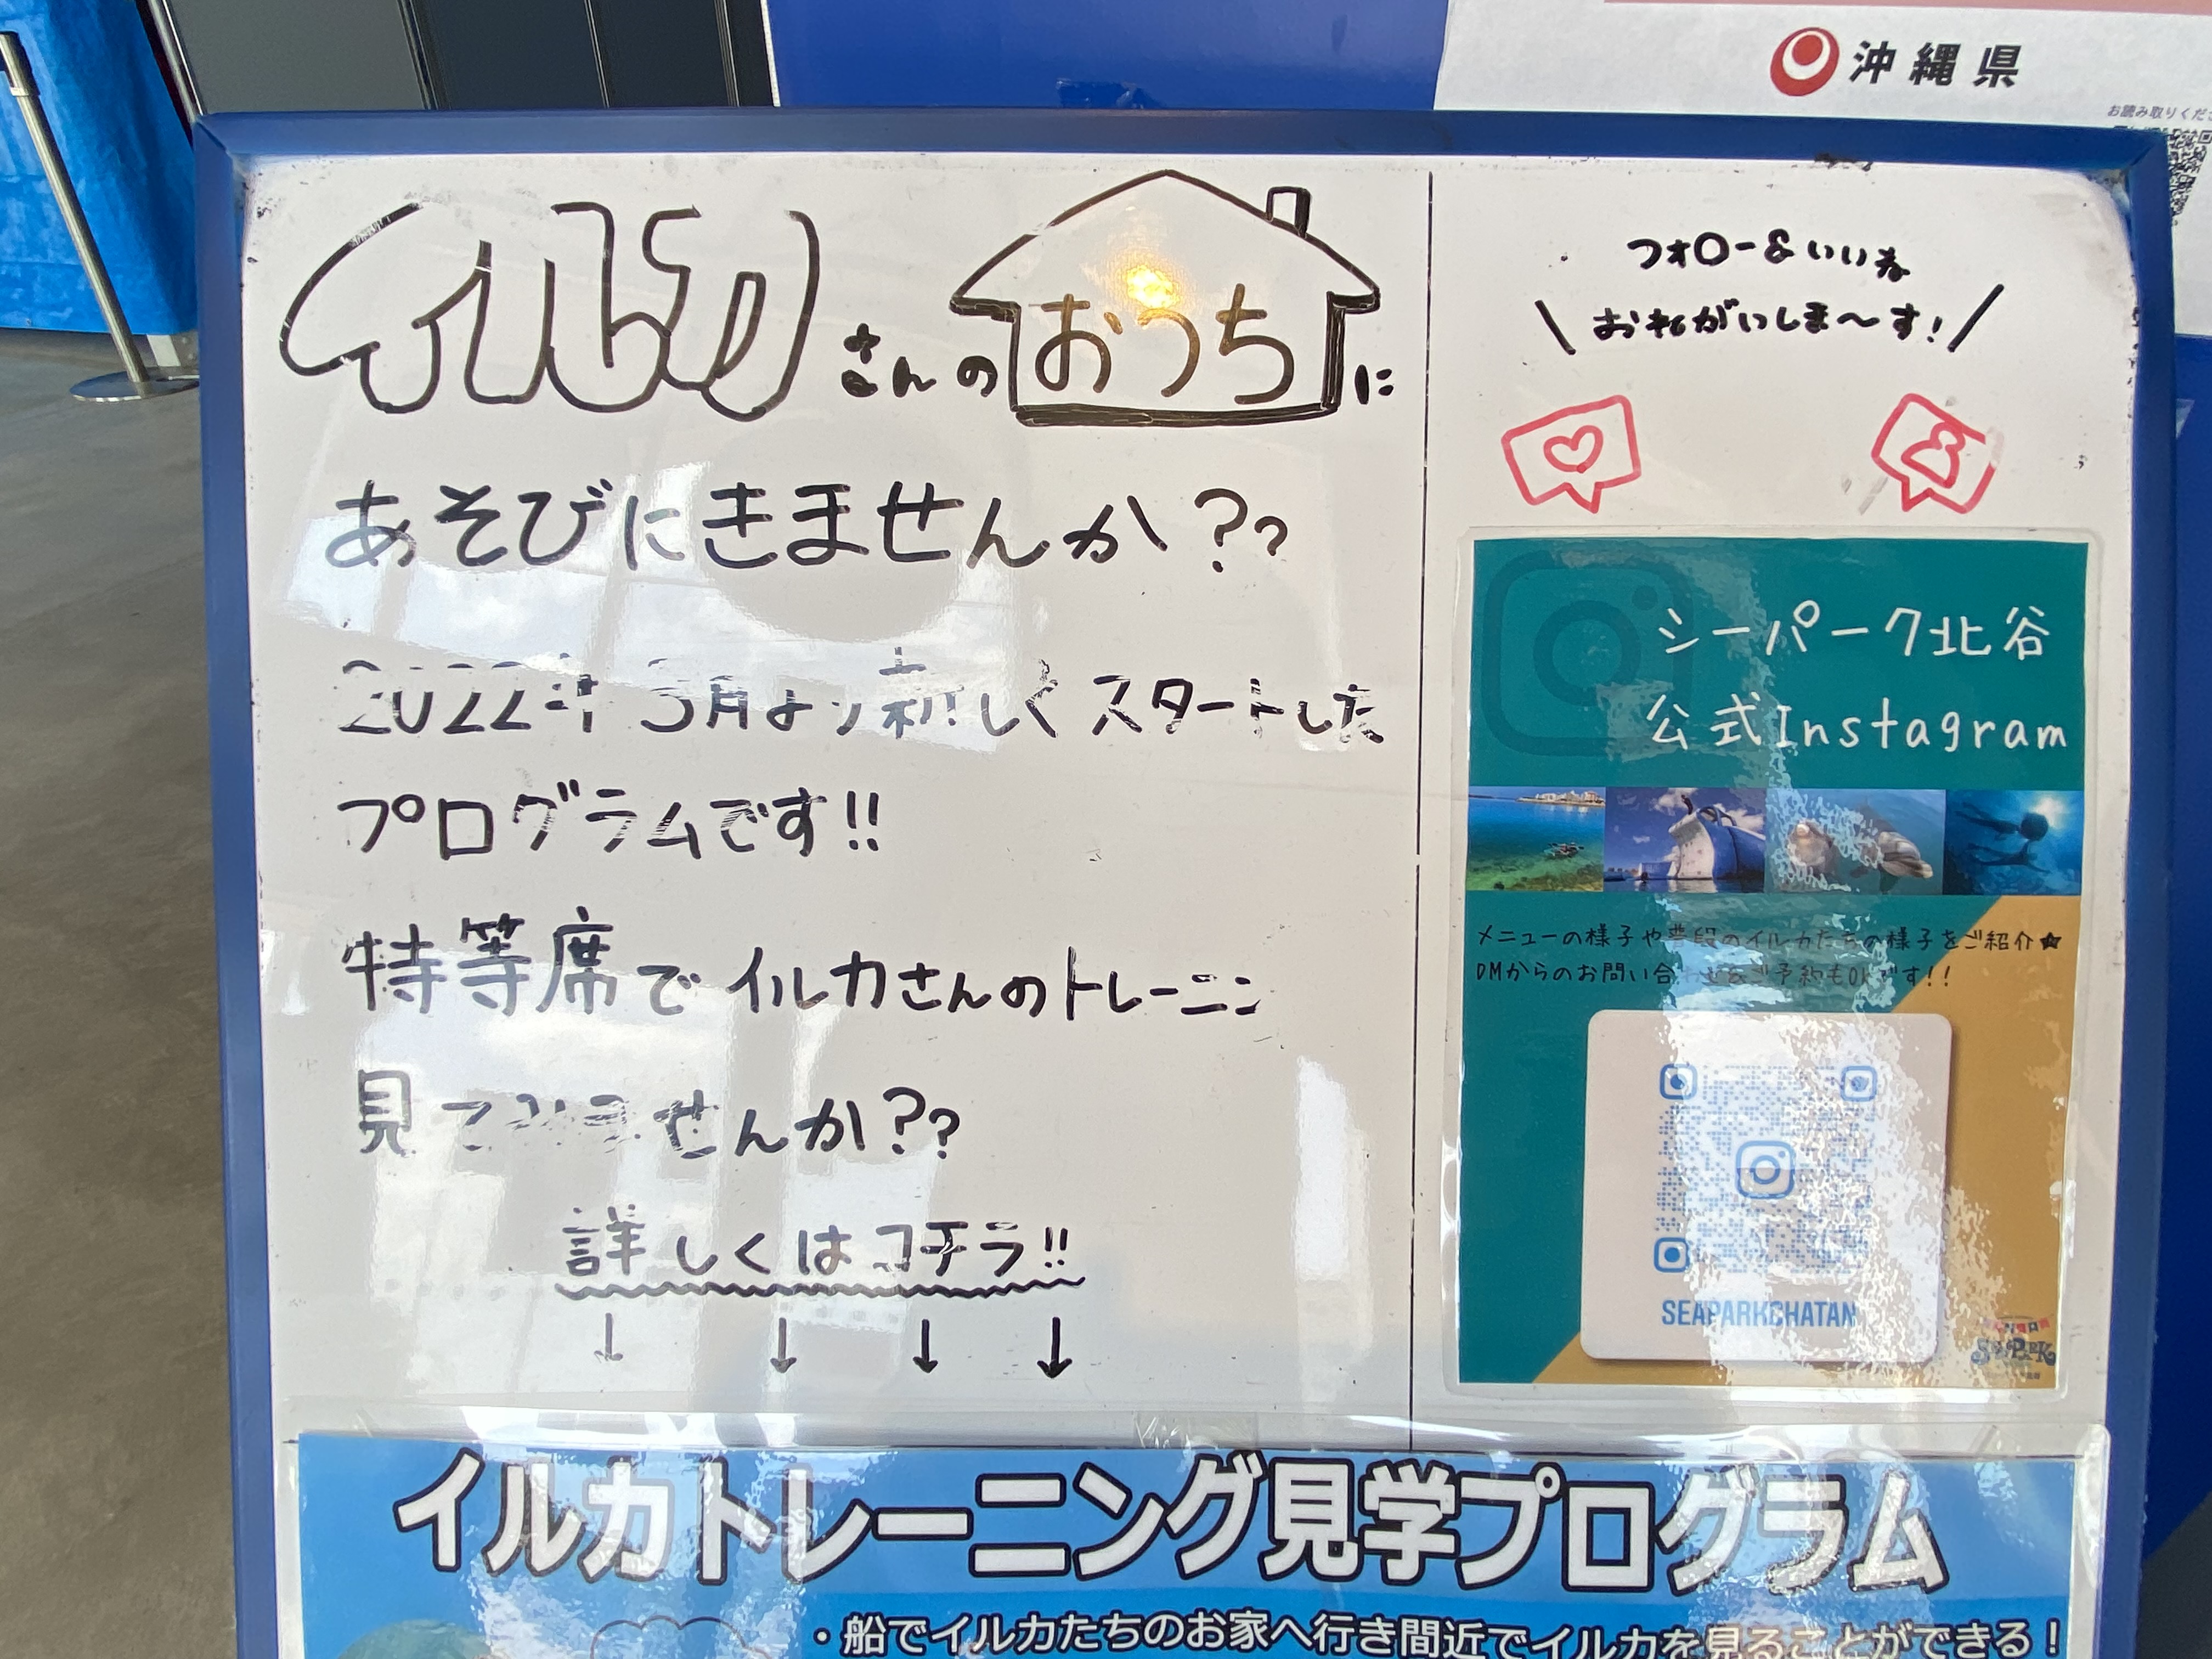 沖縄県
お読み取りくださ
イルカさんのおうちに
あそびにきませんか??
2022年3月より新しくスタートした
プログラムです!!
特等席でイルカさんのトレーニン
見てみませんか??
詳しくはコチラ!!
↓ ↓ ↓ ↓
フォロー&いいね
\おねがいしま〜す!/
シーパーク北谷
公式Instagram
メニューの様子や普段のイルカたちの様子をご紹介★
DMからのお問い合わせ&ご予約もOKです!!
SEAPARKCHATAN
SEAPARK
イルカトレーニング見学プログラム
・船でイルカたちのお家へ行き間近でイルカを見ることができる!